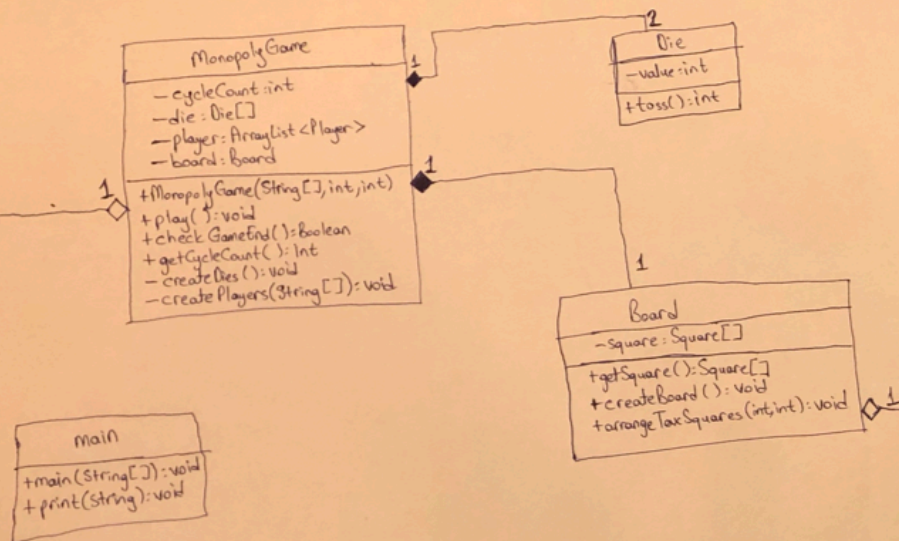 MonopolyGame
-cycleCount:int
-die:Die[]
-player:ArrayList<Player>
-board:Board
+MonopolyGame(String[],int,int)
+play():void
+checkGameEnd():Boolean
+getCycleCount():Int
-createDies():void
-createPlayers(String[]):void
1
1
1
2
Die
-value:int
+toss():int
1
Board
-square:Square[]
+getSquare():Square[]
+createBoard():void
+arrangeTaxSquares(int,int):void
1
main
+main(String[]):void
+print(String):void